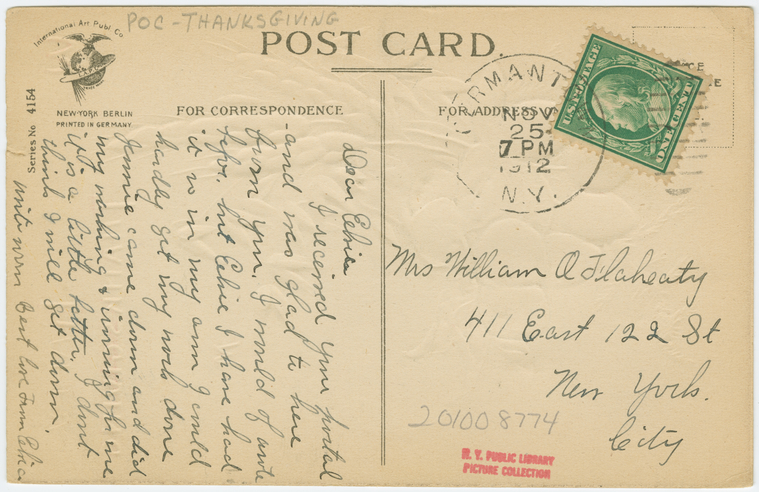 POC-THANKSGIVING
International Art Publ. Co.
POST CARD.
NEW-YORK BERLIN
PRINTED IN GERMANY
Series No 4154
FOR CORRESPONDENCE
FOR ADDRESS O
GERMANT
NOV
25
7 PM
1912
N.Y.
U.S. POSTAGE
ONE CENT
Dear Edna
I received your postal
and was glad to here
from you. I would of wrote
before but I have had
it in my arm I could
hardly get my work done
Jennie came down and did
my washing & ironing for me
it is a little better. I dont
think I will get down.
until Best love from
Mrs William O Flaheaty
411 East 122 St
New York.
City
201008774
N. Y. PUBLIC LIBRARY
PICTURE COLLECTION